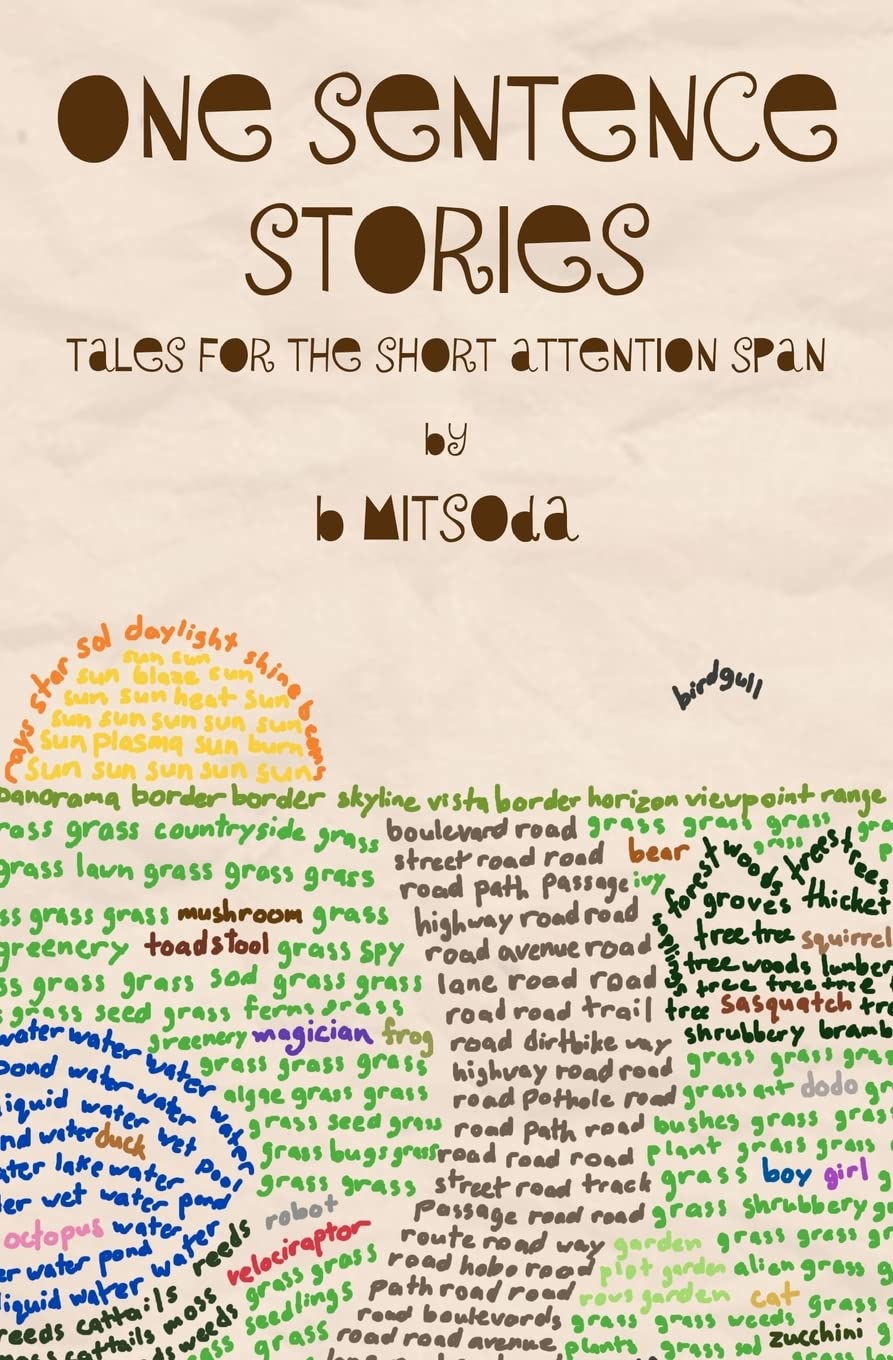 ONE SENTENCE
STORIES
TALES FOR THE SHORT ATTENTION SPAN
by
b MITSODA
rays star sol daylight shine beams
sun sun
sun blaze sun
sun sun heat sun
sun sun sun sun sun
sun plasma sun burn
sun sun sun sun sun
birdgull
panorama border border skyline vista border horizon viewpoint range
grass countryside grass boulevard road grass grass grass
grass lawn grass grass grass street road road bear grass
forest woods trees trees
road path passage ivy
groves thicket
grass grass mushroom grass highway road road
saplings tree tree squirrel
greenery toadstool grass spy road avenue road
tree woods lumber
grass grass sod grass grass lane road road
tree tree tree
grass seed grass ferns grass road road trail tree sasquatch
water water water greenery magician frog road dirtbike way shrubbery
pond water water grass grass grass highway road road grass grass
liquid water water algae grass grass road pothole road grass ant dodo
water duck wet water grass seed grass road path road bushes grass grass
lake water pool grass bugs grass road road road plant grass grass
wet water pond grass grass street road track grass boy girl
octopus water reeds robot passage road road grass shrubbery
water pond water velociraptor route road way garden grass grass
liquid water water grass grass road hobo road plot garden alien grass
reeds cattails moss seedlings path road road rows garden cat
cattails weeds grass road boulevards grass grass weeds grass
grass road road avenue plants grass sod zucchini